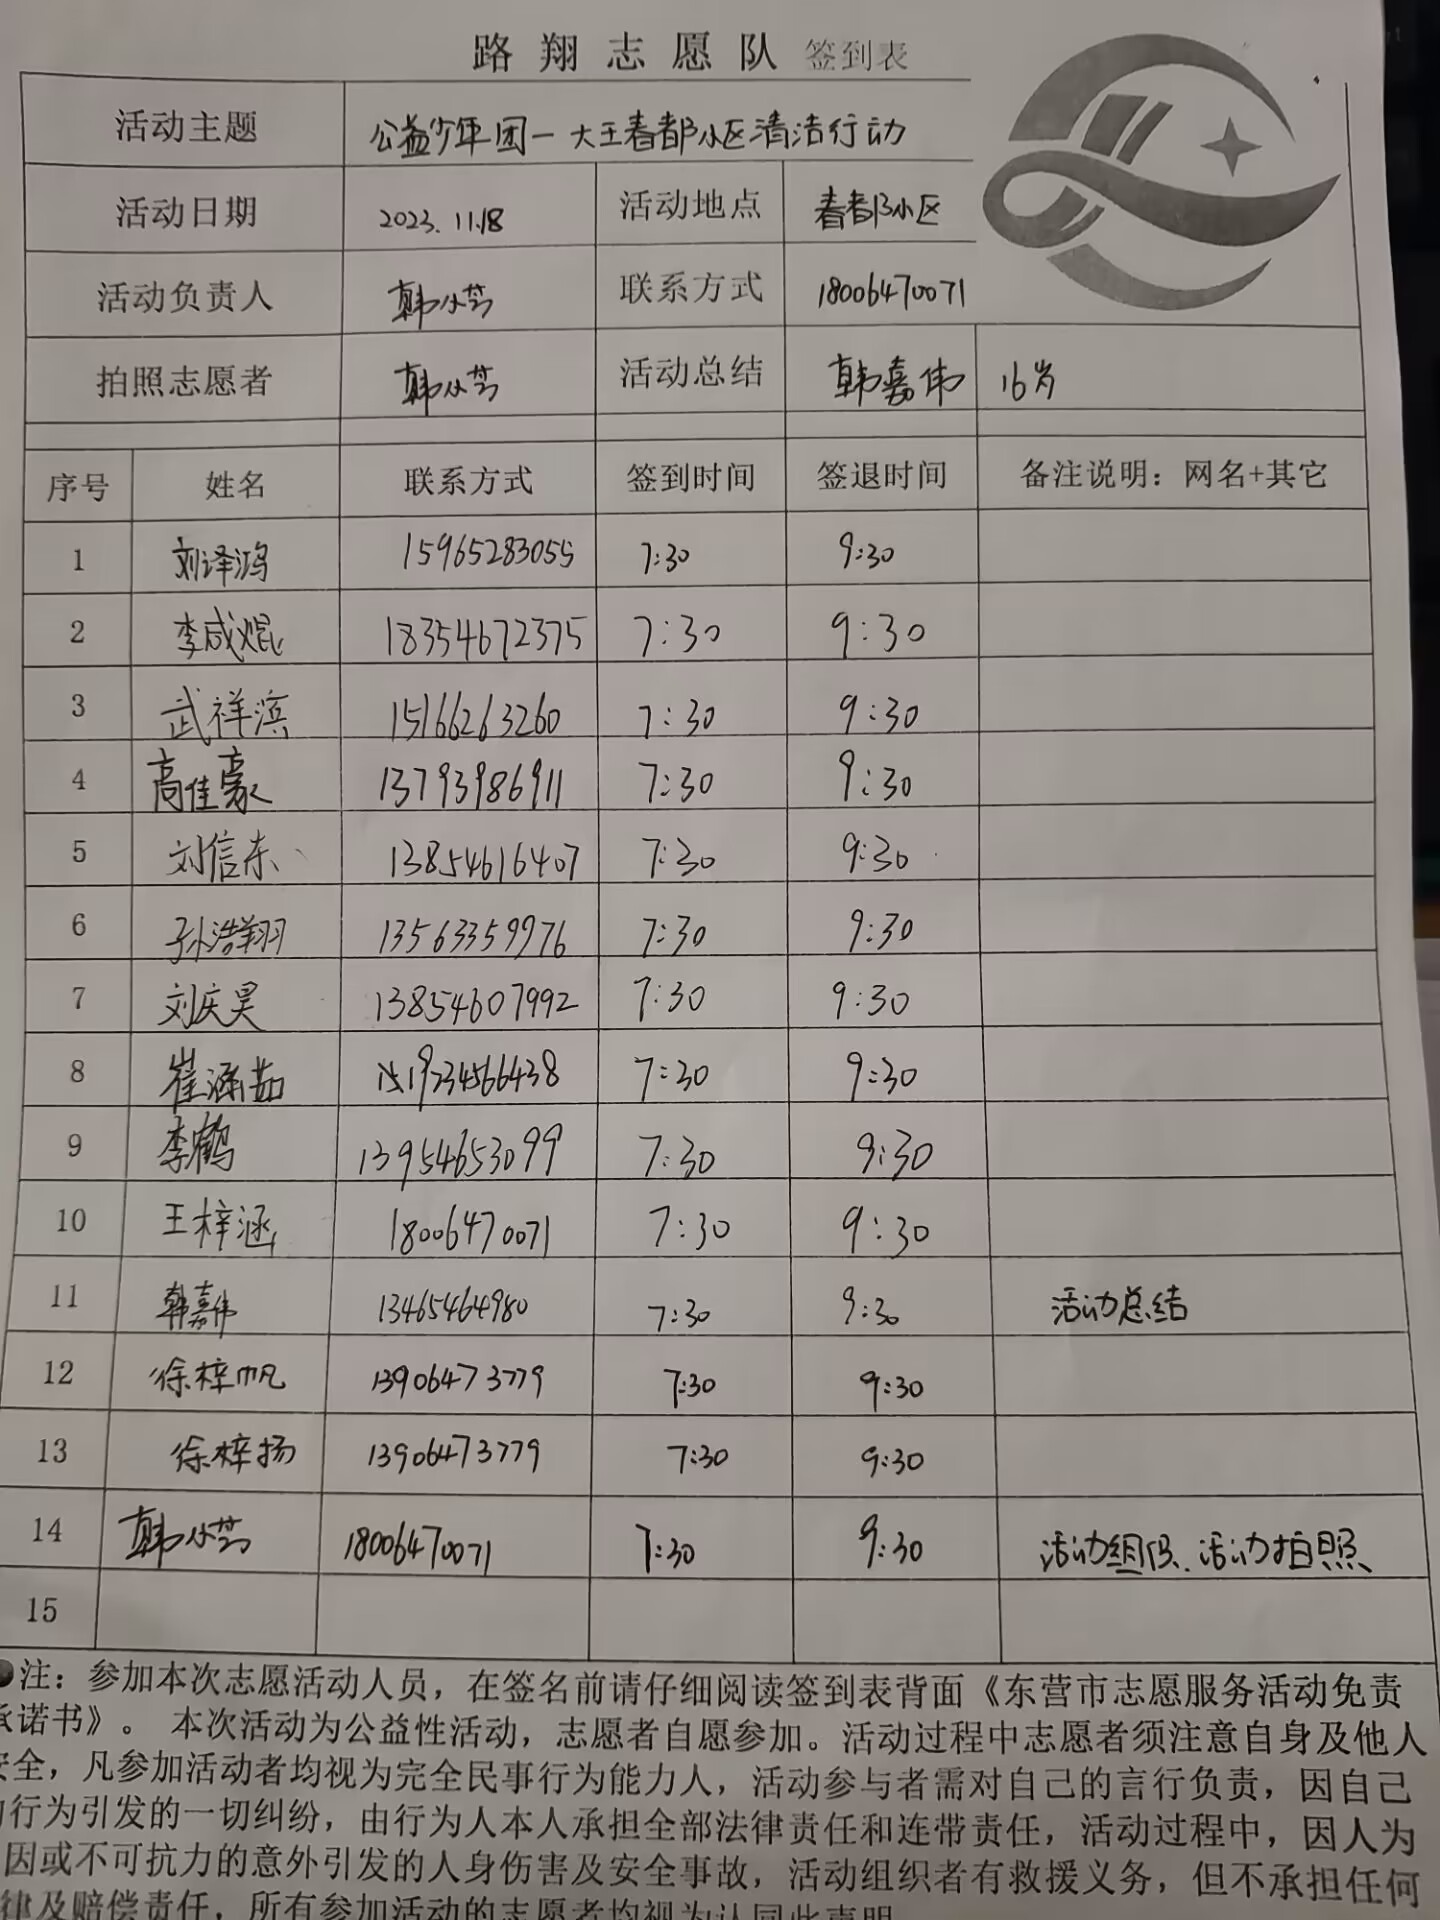 路翔志愿队 签到表
活动主题 公益少年团一大王春都小区清洁行动
活动日期 2023.11.18 活动地点 春都小区
活动负责人 韩小芸 联系方式 18006470071
拍照志愿者 韩小芸 活动总结 韩嘉伟 16岁
序号 姓名 联系方式 签到时间 签退时间 备注说明：网名+其它
1 刘泽鸿 15965283055 7:30 9:30
2 李咸焜 18354672375 7:30 9:30
3 武祥滨 15166263260 7:30 9:30
4 高佳豪 13793986911 7:30 9:30
5 刘信东 13854616407 7:30 9:30
6 孙浩翔 13563359976 7:30 9:30
7 刘庆昊 13854607992 7:30 9:30
8 崔涵茹 7:30 9:30
9 李鹤 13954653099 7:30 9:30
10 王梓涵 18006470071 7:30 9:30
11 韩嘉伟 13465464980 7:30 9:30 活动总结
12 徐梓帆 13906473779 7:30 9:30
13 徐梓扬 13906473779 7:30 9:30
14 韩小芸 18006470071 7:30 9:30 活动组队、活动拍照
15
●注：参加本次志愿活动人员，在签名前请仔细阅读签到表背面《东营市志愿服务活动免责
承诺书》。 本次活动为公益性活动，志愿者自愿参加。活动过程中志愿者须注意自身及他人
安全，凡参加活动者均视为完全民事行为能力人，活动参与者需对自己的言行负责，因自己
的行为引发的一切纠纷，由行为人本人承担全部法律责任和连带责任，活动过程中，因人为
因或不可抗力的意外引发的人身伤害及安全事故，活动组织者有救援义务，但不承担任何
律及赔偿责任，所有参加活动的志愿者均视为认同此声明